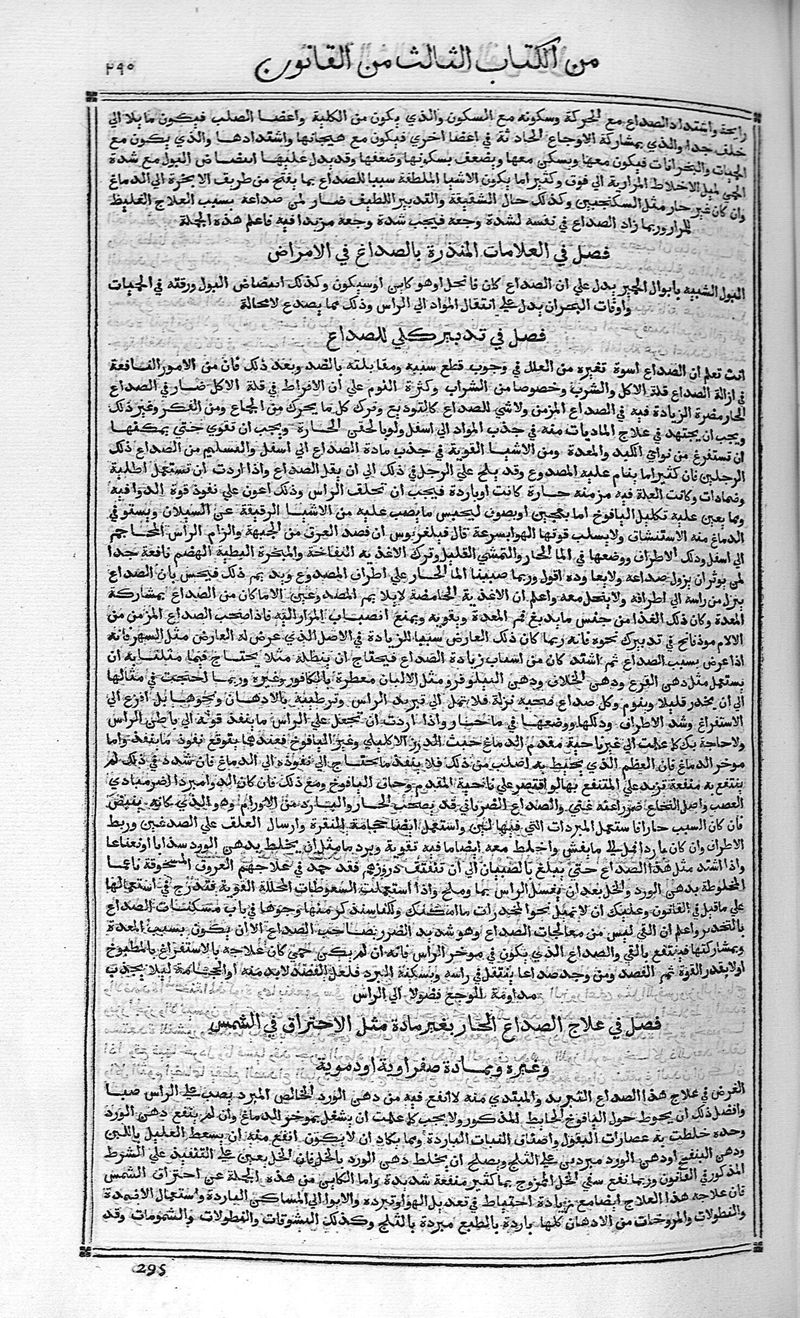 من الكتاب الثالث من القانون ٢٩٥
رائحة واشتداد الصداع مع الحركة وسكونه مع السكون والذي يكون من الكلية واعضا الصلب فيكون مايلا الى
خلف جدا والذي بمشاركة الاوجاع الحادثة في اعضا اخري فيكون مع هيجانها واشتدادها والذي يكون مع
الحميات والبحرانات فيكون معها ويسكن معها ويضعف بسكونها وضعفها وقد يدل عليها ابيضاض البول مع شدة
الحمي لميل الاخلاط المرارية الي فوق وكثيرا ما يكون الاشيا الملطفة سببا للصداع بما يفتح من طريف الابخرة الي الدماغ
وان كان غير حار مثل السكنجبين وكذلك حال الشقيقة والتدبير اللطيف ضار لمن صداعه بسبب العلاج الغليظ
للمرار وربما زاد الصداع في نفسه لشدة وجعه فيجب شدة وجعه مزيدا فيه فاعلم هذه الجملة
فصل في العلامات المنذرة بالصداع في الامراض
البول الشبيه بابوال الحمير يدل علي ان الصداع كان فانحل او هو كاين او سيكون وكذلك ابيضاض البول ورقته في الحميات
واوقات البحران يدل علي انتقال المواد الي الراس وذلك مما يصدع لا محالة
فصل في تدبير كلي للصداع
انت تعلم ان الصداع اسوة بغيره من العلل في وجوب قطع سببه ومقابلته بالضد وبعد ذلك فان من الامور النافعة
في ازالة الصداع قلة الاكل والشرب وخصوصا من الشراب وكثرة النوم علي أن الافراط في قلة الاكل ضار في الصداع
الحار مضرة الزيادة فيه في الصداع المزمن ولا شي للصداع كالتوديع وترك كل ما يحرك من الجماع ومن الفكر وغير ذلك
ويجب ان يجتهد في علاج الماديات منه في جذب المواد الي اسفل ولو بالحقن الحارة ويجب ان تقوي حتي يمكنها
ان تستفرغ من نواحي الكبد والمعدة ومن الاشيا القوية في جذب مادة الصداع الي اسفل والتسليم من الصداع ذلك
الرجلين فان كثيرا ما ينام عليه المصدوع وقد يلح علي الرجل في ذلك الي ان يقل الصداع واذا اردت ان تستعمل اطلية
وضمادات وكانت العلة فيه مزمنه حارة كانت او باردة فيجب ان تحلق الراس وذلك اعون علي نفوذ قوة الدوا فيه
ومما يعين عليه تكليل اليافوخ اما بعجين او بصوف ليحبس ما يصب عليه من الاشيا الرقيقة عن السيلان ويستوفي
الدماغ منه الاستنشاق ولا يسلب قوتها الهوا بسرعة قال فيلغريوس ان فصد العرق من الجبهة والزام الراس المحاجم
الي اسفل ودلك الاطراف ووضعها في الما الحار والتمشي القليل وترك الاغذيه النفاخة والمبخرة البطية الهضم نافعة جدا
لمن يوثر ان يزول صداعه ولا يعاوده اقول وربما صببنا الما الحار علي اطراف المصدوع ويديم ذلك فيحس بان الصداع
ينزل من راسه الي اطرافه ولا ينحل معه واعلم ان الاغذية الحامضة لا يلايم المصدوعين الا ما كان من الصداع بمشاركة
المعدة وكان ذلك الغذا من جنس ما يدبغ فم المعدة ويقويه ويمنع انصباب المرار اليه فاذا صحب الصداع المزمن من
الالام موذ فانح في تدبيرك نحوه فانه ربما كان ذلك العارض سببا للزيادة في الاصل الذي عرض له العارض مثل السهر فانه
اذا عرض بسبب الصداع ثم اشتد كان من اسباب زيادة الصداع فيحتاج ان ينطله مثلا يحتاج فيما مثلنا به ان
يستعمل مثل دهن القرع ودهن الخلاف ودهن النيلوفر ومثل الالبان معطرة بالكافور وغيره وربما احتجت في مثالها
الي ان يخدر قليلا وينوم وكل صداع صحبه نزلة فلا يمل الي تبريد الراس وترطيبه بالادهان ونحوها بل افزع الي
الاستفراغ وشد الاطراف ودلكها ووضعها في ما حار واذا اردت ان تجعل علي الراس ما ينفد قوته الي باطن الراس
ولا حاجة بك كما علمت الي غير ناحية مقدم الدماغ حيث الدرز الاكليلي وغير اليافوخ فعندهما يتوقع نفوذ ما ينفد واما
موخر الدماغ فان العظم الذي يحيط به اصلب من ذلك فلا ينفد ما تحتاج الي نفوذه الي الدماغ فان شدة في ذلك لم
ينتفع به منفعة تزيد علي المنتفع بها لو اقتصر علي ناحية المقدم وحاق اليافوخ ومع ذلك فان كان الدوا مبردا اضر بمبادي
العصب واصل النخاع ضررا عنه غني والصداع الضرباني قد يصحب الحار والبارد من الاورام وهو الذي كانه ينبض
فان كان السبب حارا فاستعمل المبردات التي فيها لين واستعمل ايضا حجامة النقرة وارسال العلق علي الصدغين وربط
الاطراف وان كان باردا فمل الي ما يفش واخلط معه ايضا ما فيه تقوية ويبرد ما مثل ان يخلط بدهن الورد سذابا او نعناعا
واذا اشتد مثل هذا الصداع حتي يبلغ بالصبيان الي ان تنفتق دروزهم فقد حمد في علاجهم العروق المسحوقة ناعما
المخلوطة بدهن الورد والخل بعد ان يغسل الراس بما وملح واذا استعملت السعوطات المحللة القوية فتدرج في استعمالها
علي ما قيل في القانون وعليك ان لا تميل نحو المخدرات ما امكنك ولكنا سنذكر منها وجوها في باب مسكنات الصداع
بالتخدير واعلم ان القي ليس من معالجات الصداع وهو شديد الضرر لصاحب الصداع الا ان يكون بسبب المعدة
وبمشاركتها فينتفع بالقي والصداع الذي يكون في موخر الراس فانه ان لم يكن حمي كان علاجه بالاستفراغ بالمطبوخ
اولا بقدر القوة ثم الفصد ومن وجد صداعا ينتقل في راسه ويسكنه البرد فلعل الفصد لا بد منه او الحجامة ليلا يجذب
مداومة الوجع فضولا الي الراس
فصل في علاج الصداع الحار بغير مادة مثل الاحتراق في الشمس
وغيره وبمادة صفراوية او دموية
الغرض في علاج هذا الصداع التبريد والمبتدي منه لا انفع فيه من دهن الورد الخالص المبرد يصب علي الراس صبا
وافضل ذلك ان يحوط حول اليافوخ الحايط المذكور ولا يجب كما علمت ان يشغل بموخر الدماغ وان لم ينفع دهن الورد
وحده خلطت به عصارات البقول واصناف النبات الباردة ومما يكاد ان لا يكون انفع منه ان يسعط العليل باللبن
ودهن البنفسج او دهن الورد مبردين علي الثلج ويصلح ان يخلط دهن الورد بالخل فان الخل يعين علي التنفيذ علي الشرط
المذكور في القانون وربما نفع سقي الخل الممزوج بما كثير منفعة شديدة واما الكاين من هذه الجملة عن احتراق الشمس
فان علاجه هذا العلاج ايضا مع زيادة احتياط في تعديل الهوا وتبريده والايوا الي المساكن الباردة واستعمال الاضمدة
والنطولات والمروخات من الادهان كلها باردة بالطبع مبردة بالثلج وكذلك النشوقات والنطولات والشمومات وقد
295